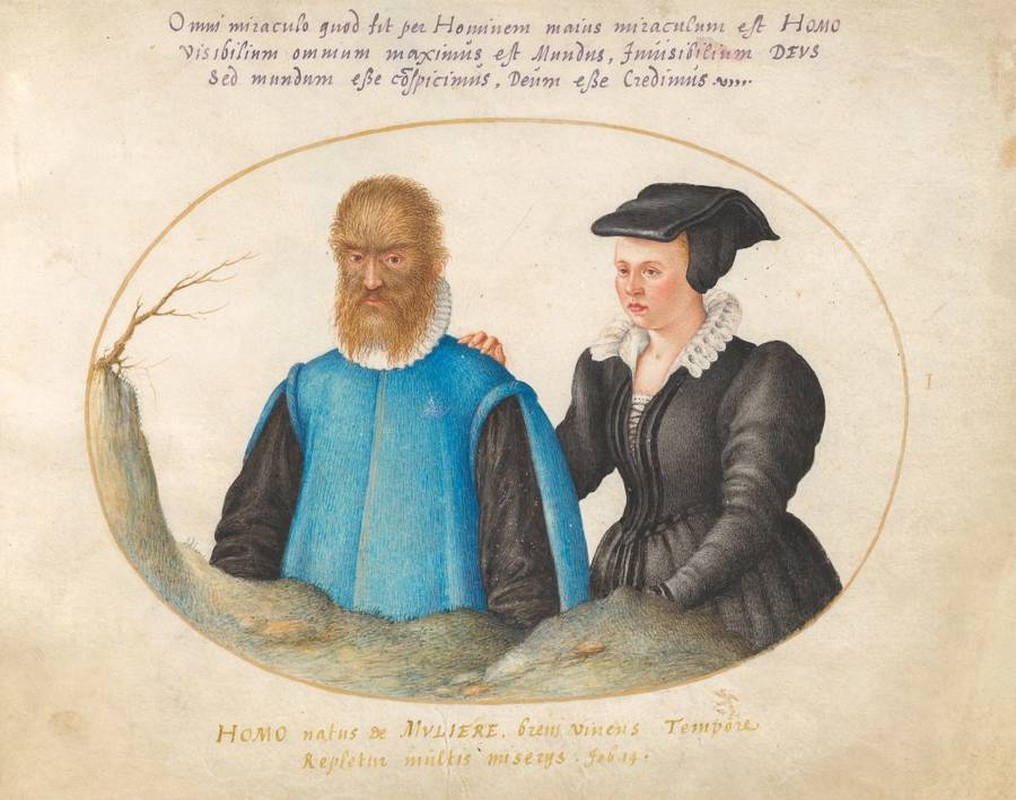 Omni miraculo quod fit per Hominem maius miraculum est HOMO
Visibilium omnium maximus est Mundus, Inuisibilium DEVS
Sed mundum eße cõspicimus, Deum eße Credimus
I
HOMO natus de MVLIERE, breui viuens Tempore
Repletur multis miserys. Job. 14.